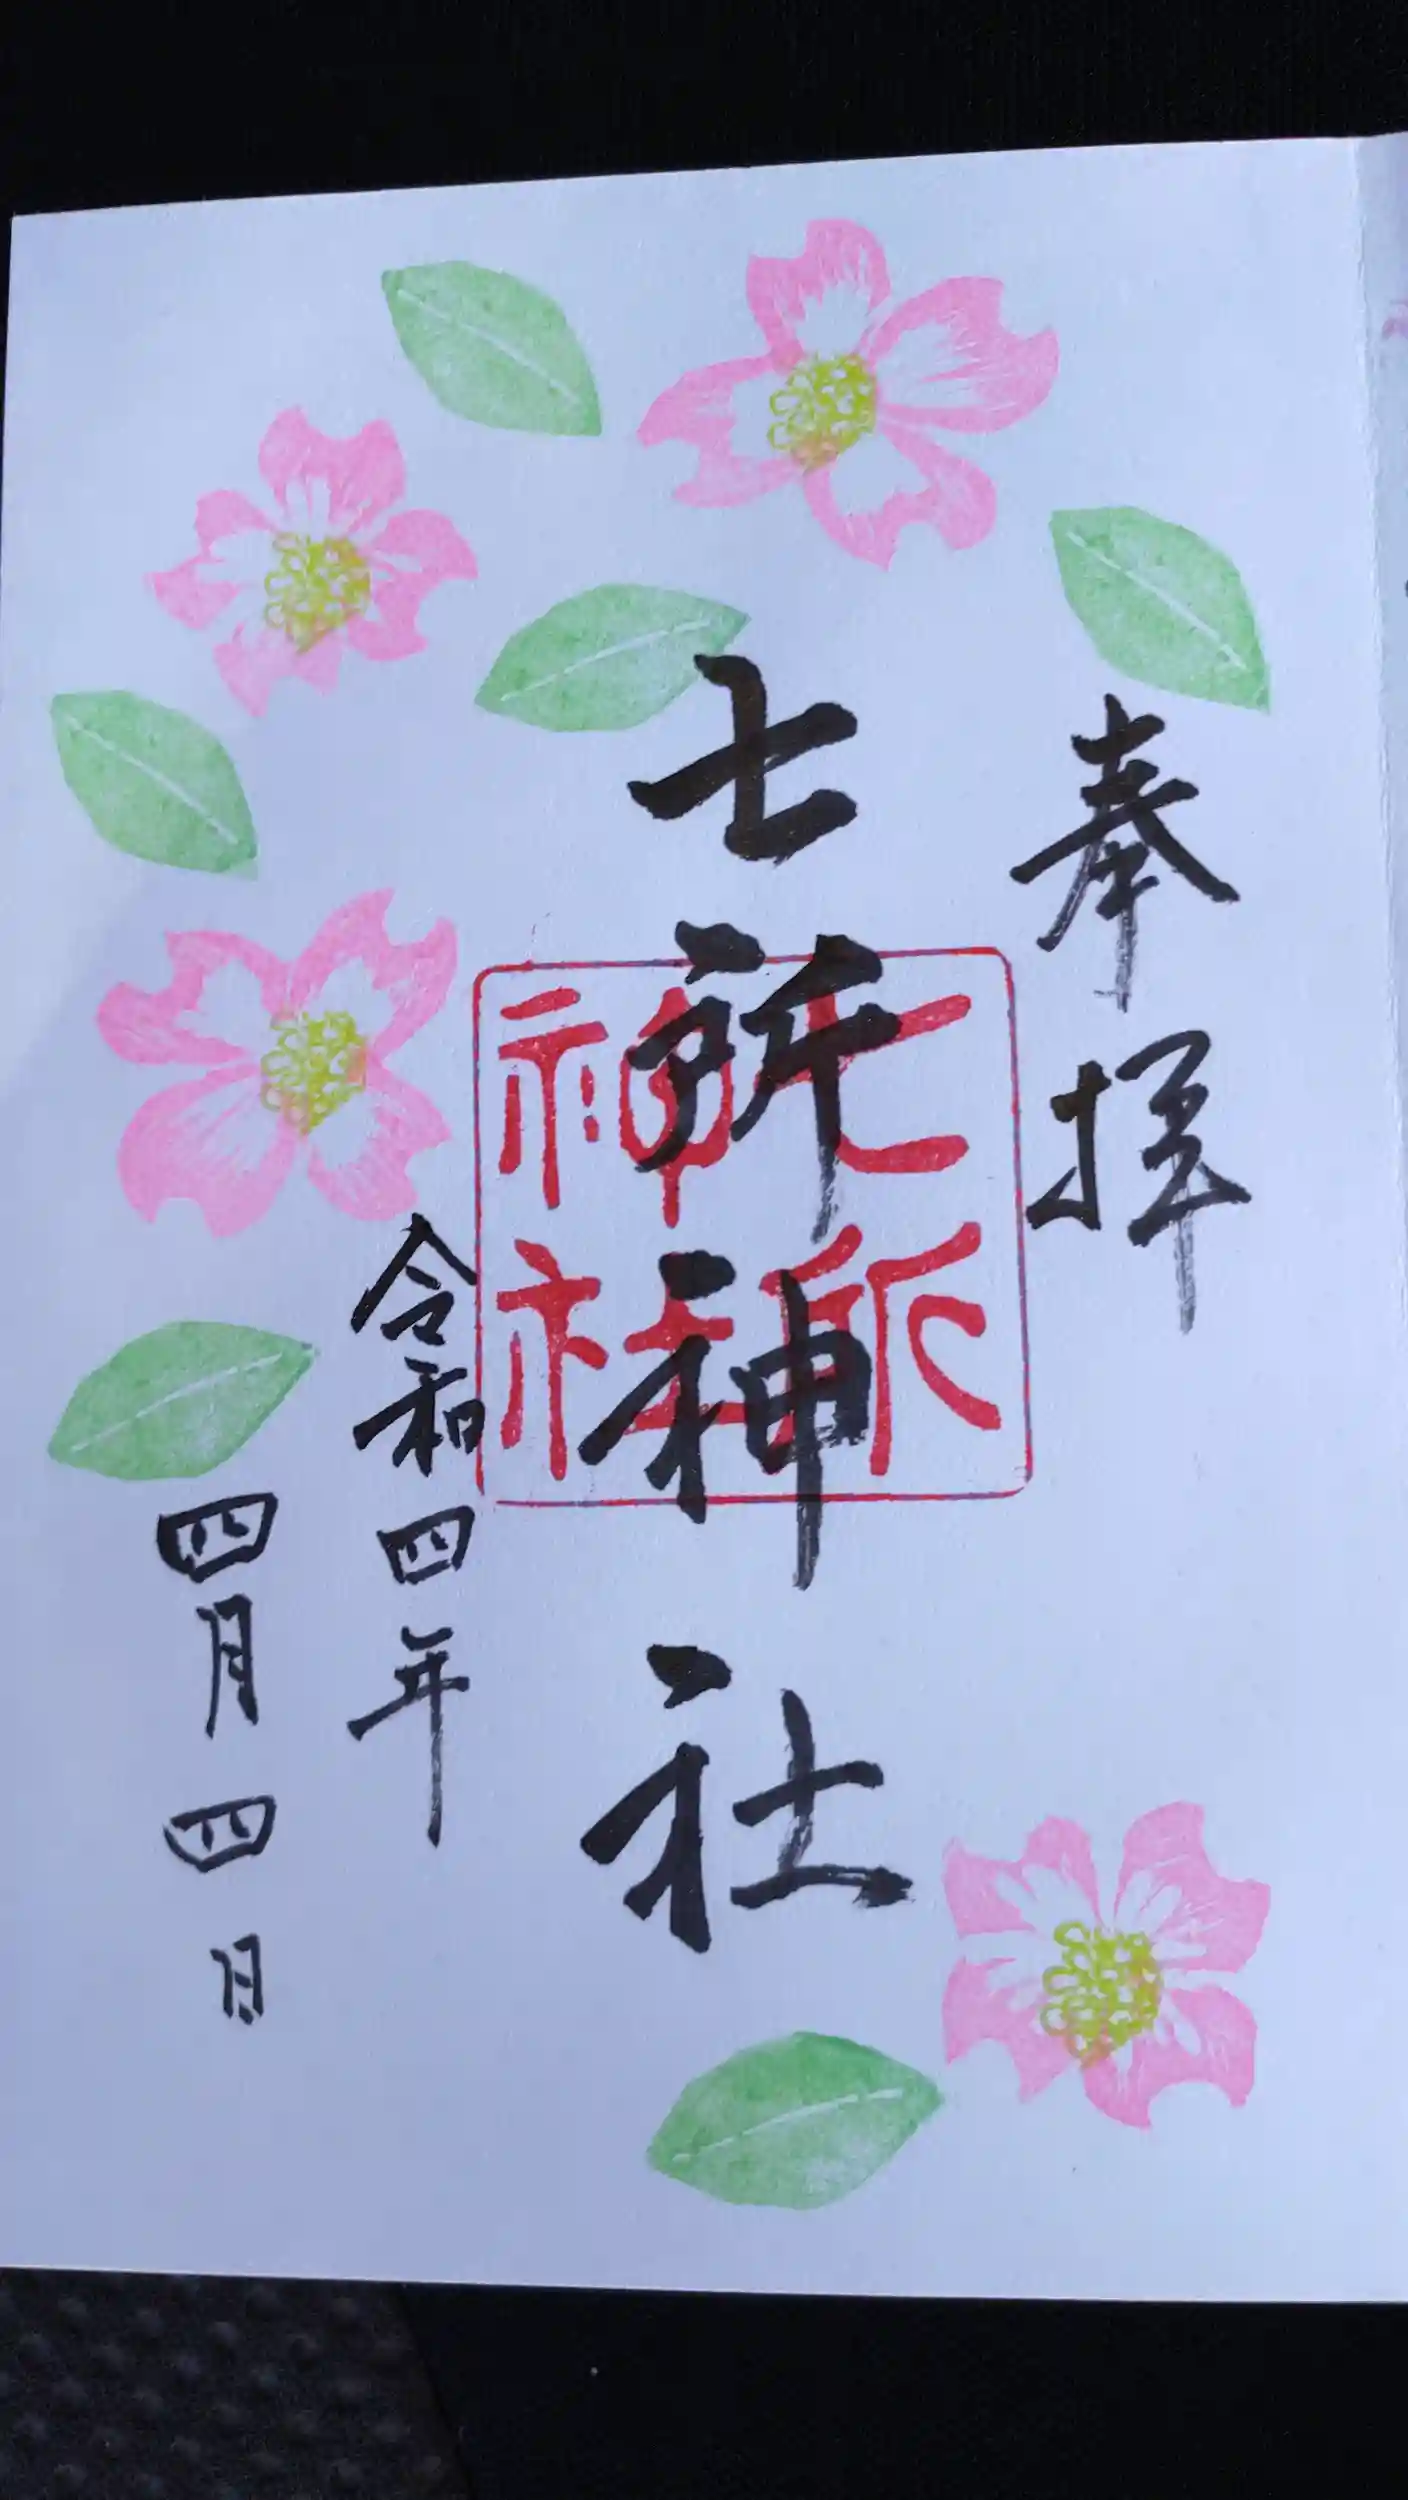 奉拝
七所神社
七所神社
令和四年
四月四日